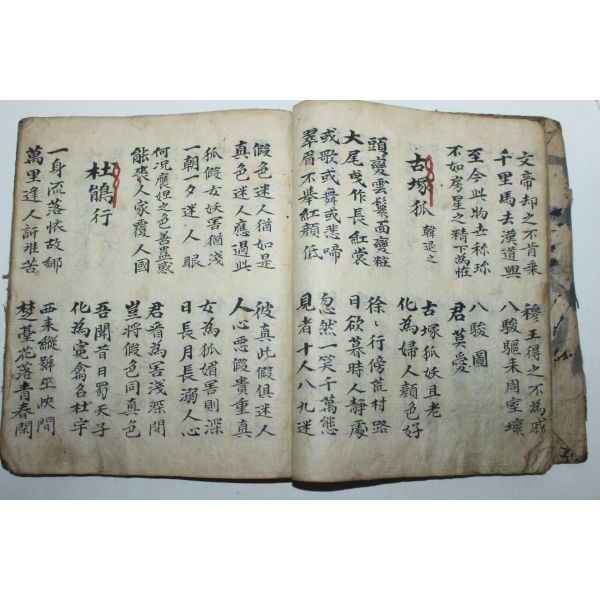 文帝却之不肯乘
千里馬去漢道興
穆王得之不為戚
八駿驅來周室壞
至今此物世称珎
不如房星之精下為恠
八駿圖
君莫愛
古塚狐 韓退之
古塚狐妖且老
化為婦人顏色好
頭變雲鬟面變粧
大尾曳作長紅裳
徐〻行傍荒村路
日欲暮時人靜處
或歌或舞或悲啼
翠眉不舉紅顏低
忽然一笑千萬態
見者十人八九迷
假色迷人猶如是
真色迷人應過此
彼真此假俱迷人
人心惡假貴重真
狐假女妖害猶淺
一朝夕迷人眼
女為狐媚害則深
日長月長溺人心
何況褒妲之色善蠱惑
能喪人家覆人國
君看為害淺深間
豈將假色同真色
杜鵑行
吾聞昔日蜀天子
化為寃禽名杜宇
一身流落懷故鄉
萬里逢人訴離苦
西来縱號巫峽間
楚臺花落青春閑